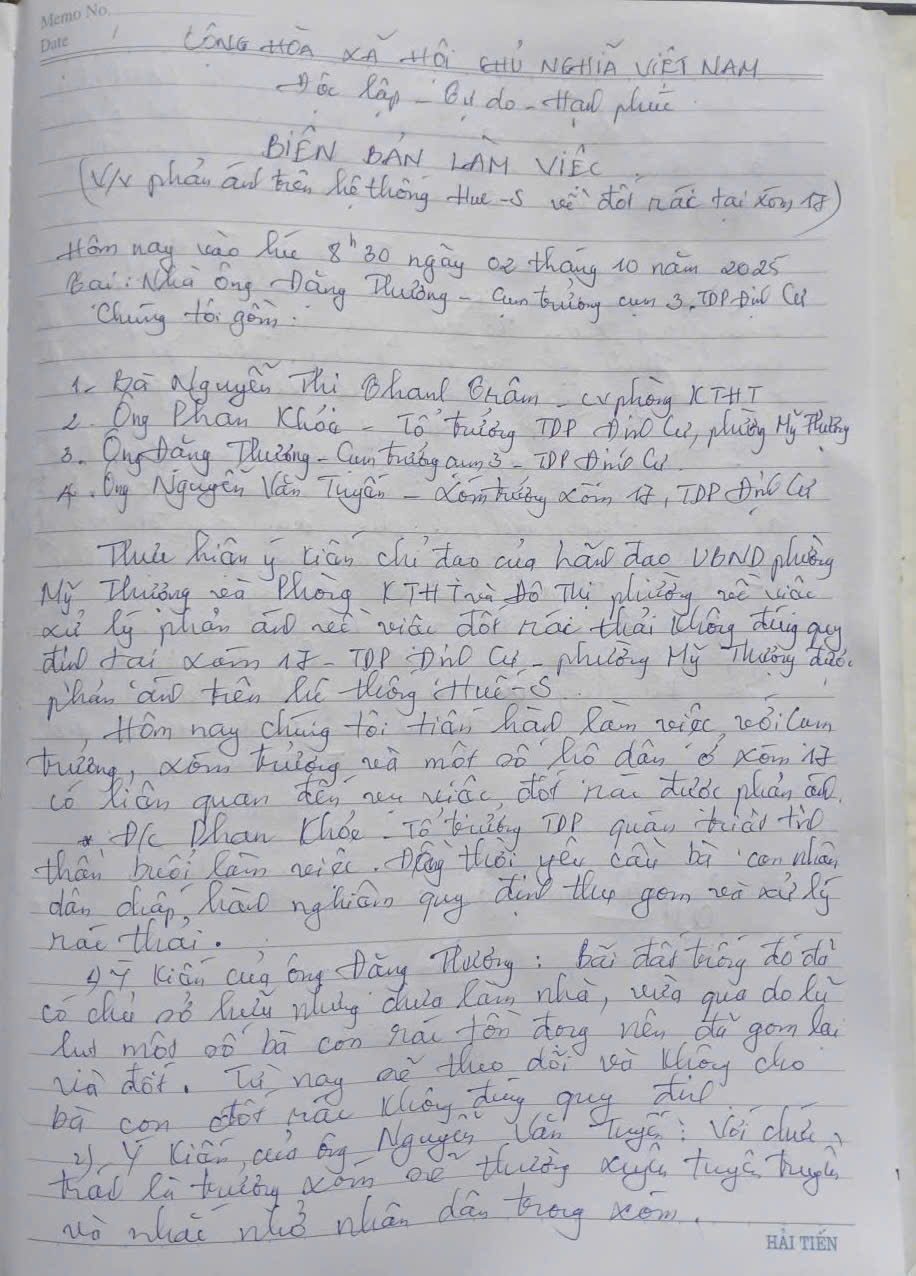 Memo No.
Date
CỘNG HÒA XÃ HỘI CHỦ NGHĨA VIỆT NAM
Độc lập - Tự do - Hạnh phúc
BIÊN BẢN LÀM VIỆC
(V/v phản ánh trên hệ thống Hue-S về đốt rác tại xóm 17)
Hôm nay vào lúc 8h30 ngày 02 tháng 10 năm 2025
Tại: Nhà ông Đặng Thưởng - Cụm trưởng cụm 3, TDP Định Cư
Chúng tôi gồm:
1. Bà Nguyễn Thị Thanh Trâm - cv phòng KTHT
2. Ông Phan Khóa - Tổ trưởng TDP Định Cư, phường Mỹ Thượng
3. Ông Đặng Thưởng - Cụm trưởng cụm 3 - TDP Định Cư
4. Ông Nguyễn Văn Tuyến - Xóm trưởng xóm 17, TDP Định Cư
Thực hiện ý kiến chỉ đạo của lãnh đạo UBND phường
Mỹ Thượng và Phòng KTHT và Đô Thị phường về việc
xử lý phản ánh về việc đốt rác thải không đúng quy
định tại xóm 17 - TDP Định Cư - phường Mỹ Thượng được
phản ánh trên hệ thống Huế-S.
Hôm nay chúng tôi tiến hành làm việc với Cụm
trưởng, xóm trưởng và một số hộ dân ở xóm 17
có liên quan đến vụ việc đốt rác được phản ánh.
* Đ/c Phan Khóa - Tổ trưởng TDP quán triệt tinh
thần buổi làm việc. Đồng thời yêu cầu bà con nhân
dân chấp hành nghiêm quy định thu gom và xử lý
rác thải.
1) Ý kiến của ông Đặng Thưởng: bãi đất trống đó đã
có chủ sở hữu nhưng chưa làm nhà, vừa qua do lũ
lụt một số bà con rác tồn đọng nên đã gom lại
và đốt. Từ nay sẽ theo dõi và không cho
bà con đốt rác không đúng quy định
2) Ý kiến của ông Nguyễn Văn Tuyến: Với chức
trách là trưởng xóm sẽ thường xuyên tuyên truyền
và nhắc nhở nhân dân trong xóm.
HẢI TIẾN